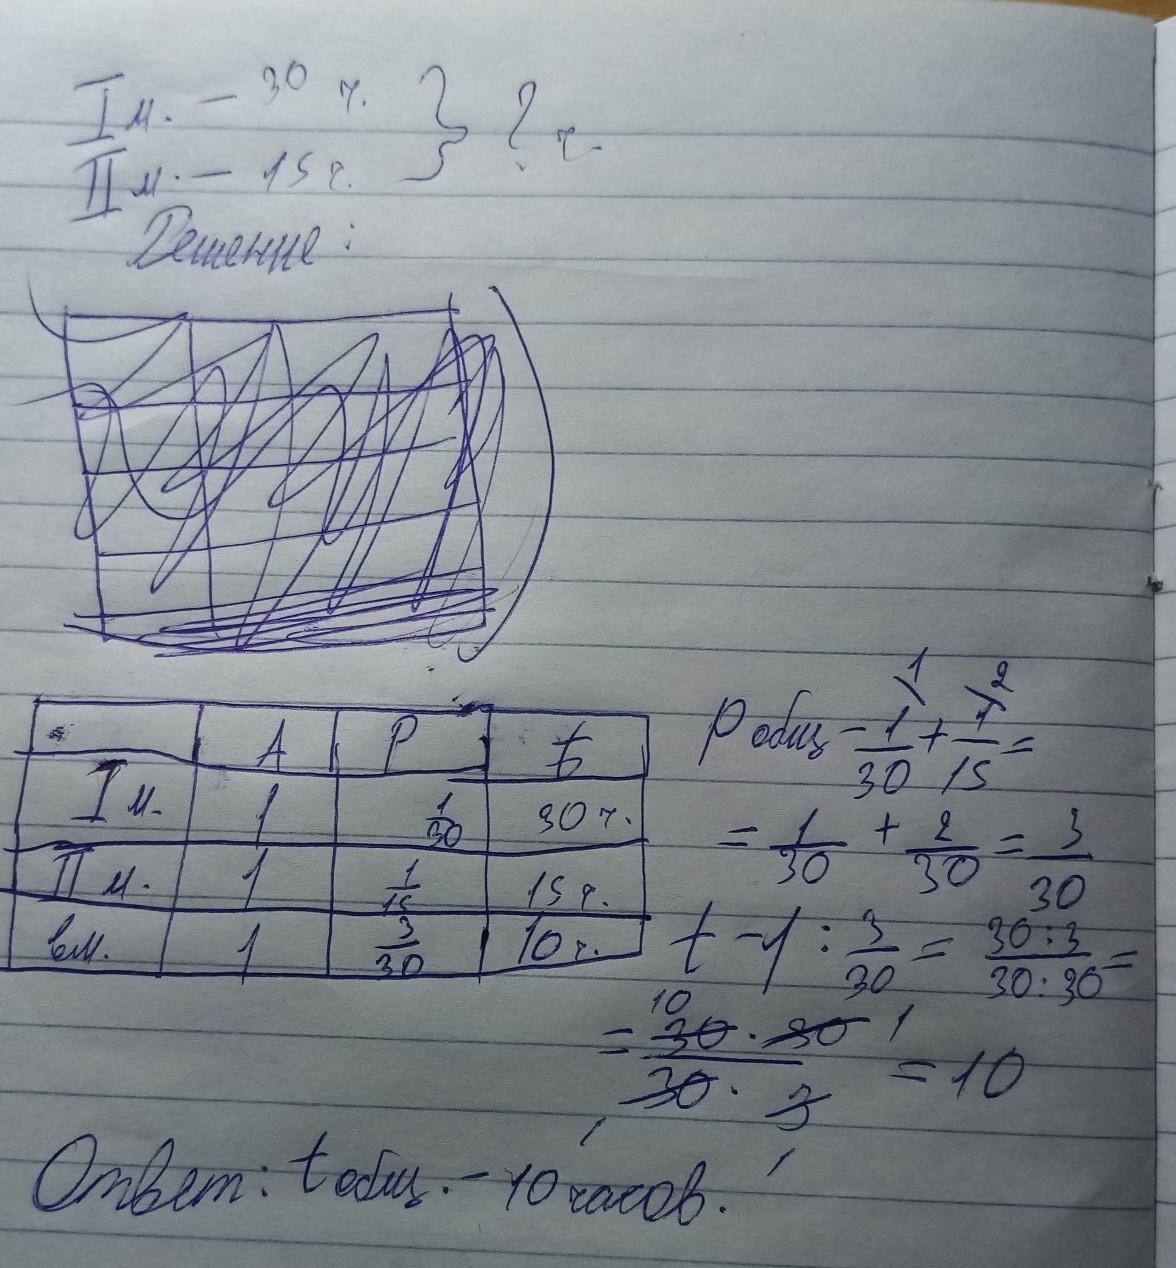 I м. - 30 ч. } ? ч
II м. - 15 ч.
Решение:
A P t
I м. 1 1/30 30 ч.
II м. 1 1/15 15 ч.
вм. 1 3/30 10 ч.
1 2
P общ - 1/30 + 1/15 =
= 1/30 + 2/30 = 3/30
t - 1 : 3/30 = 30:3/30:30 =
10
= 30 · 30 / 30 · 3 1 = 10
1 1
Ответ: t общ. - 10 часов.